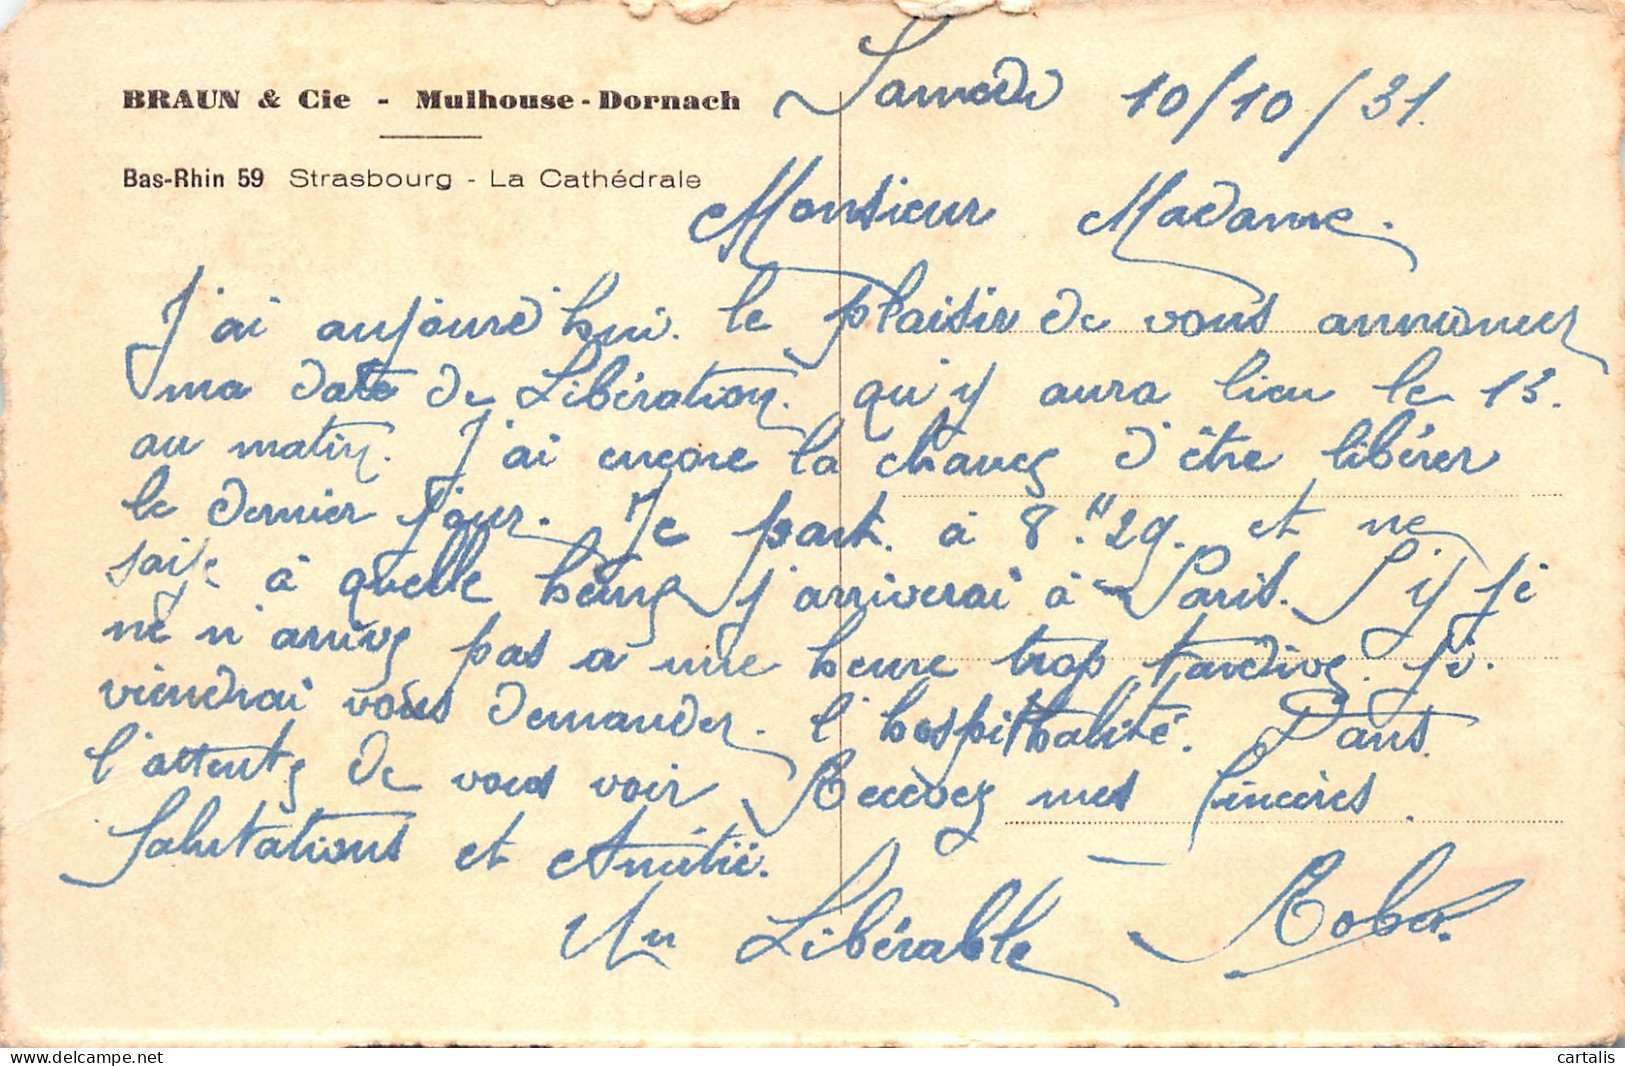 BRAUN & Cie - Mulhouse-Dornach
Bas-Rhin 59 Strasbourg - La Cathédrale
Samedi 10/10/31.
Monsieur Madame.
J'ai aujourd'hui. le plaisir de vous annoncer
ma date de Libération. qu'y aura lieu le 13.
au matin. J'ai encore la chance d'être libérer
le dernier jour. Je part. à 8.H29. et ne
sais à quelle heure j'arriverai à Paris. S'y je
ne n'arrive pas a une heure trop tardive. je.
viendrai vous demander. l'hospithalité. Dans.
l'attente de vous voir Recevez mes sincères.
Salutations et Amitié.
Un Libérable Rober.
cartalis
www.delcampe.net